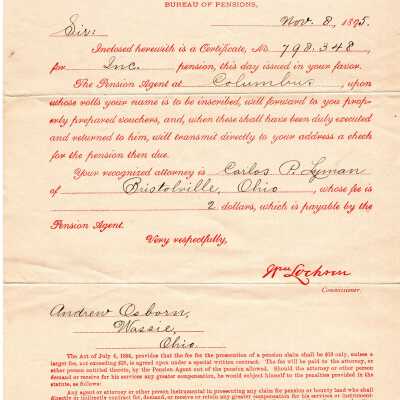 BUREAU OF PENSIONS,
Nov. 8, 1895.
Sir:
Inclosed herewith is a Certificate, No. 798.348,
for Inc. pension, this day issued in your favor.
The Pension Agent at Columbus, upon
whose rolls your name is to be inscribed, will forward to you prop-
erly prepared vouchers, and, when these shall have been duly executed
and returned to him, will transmit directly to your address a check
for the pension then due.
Your recognized attorney is Carlos P. Lyman
of Bristolville, Ohio, whose fee is
2 dollars, which is payable by the
Pension Agent.
Very respectfully,
Wm Lochren
Commissioner.
Andrew Osborn,
Wassie,
Ohio.
The Act of July 4, 1884, provides that the fee for the prosecution of a pension claim shall be $10 only, unless a
larger fee, not exceeding $25, is agreed upon under a special written contract. The fee will be paid to the attorney, or
other person entitled thereto, by the Pension Agent out of the pension allowed. Should the attorney or other person
demand or receive for his services any greater compensation, he would subject himself to the penalties provided in the
statute, as follows:
Any agent or attorney or other person instrumental in prosecuting any claim for pension or bounty land who shall
directly or indirectly contract for, demand, or receive or retain any greater compensation for his services or instrument-